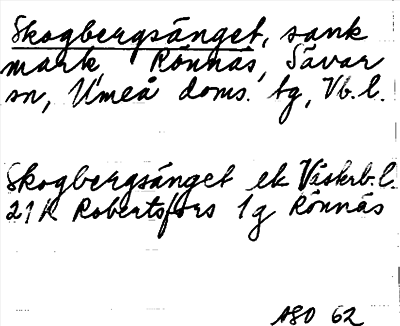 Skogbergsänget, sank
mark, Rönnäs, Sävar
sn, Umeå doms. tg, Vb.l.
Skogbergsänget ek Västerb.l.
21K Robertsfors 1g Rönnäs
ASO 62